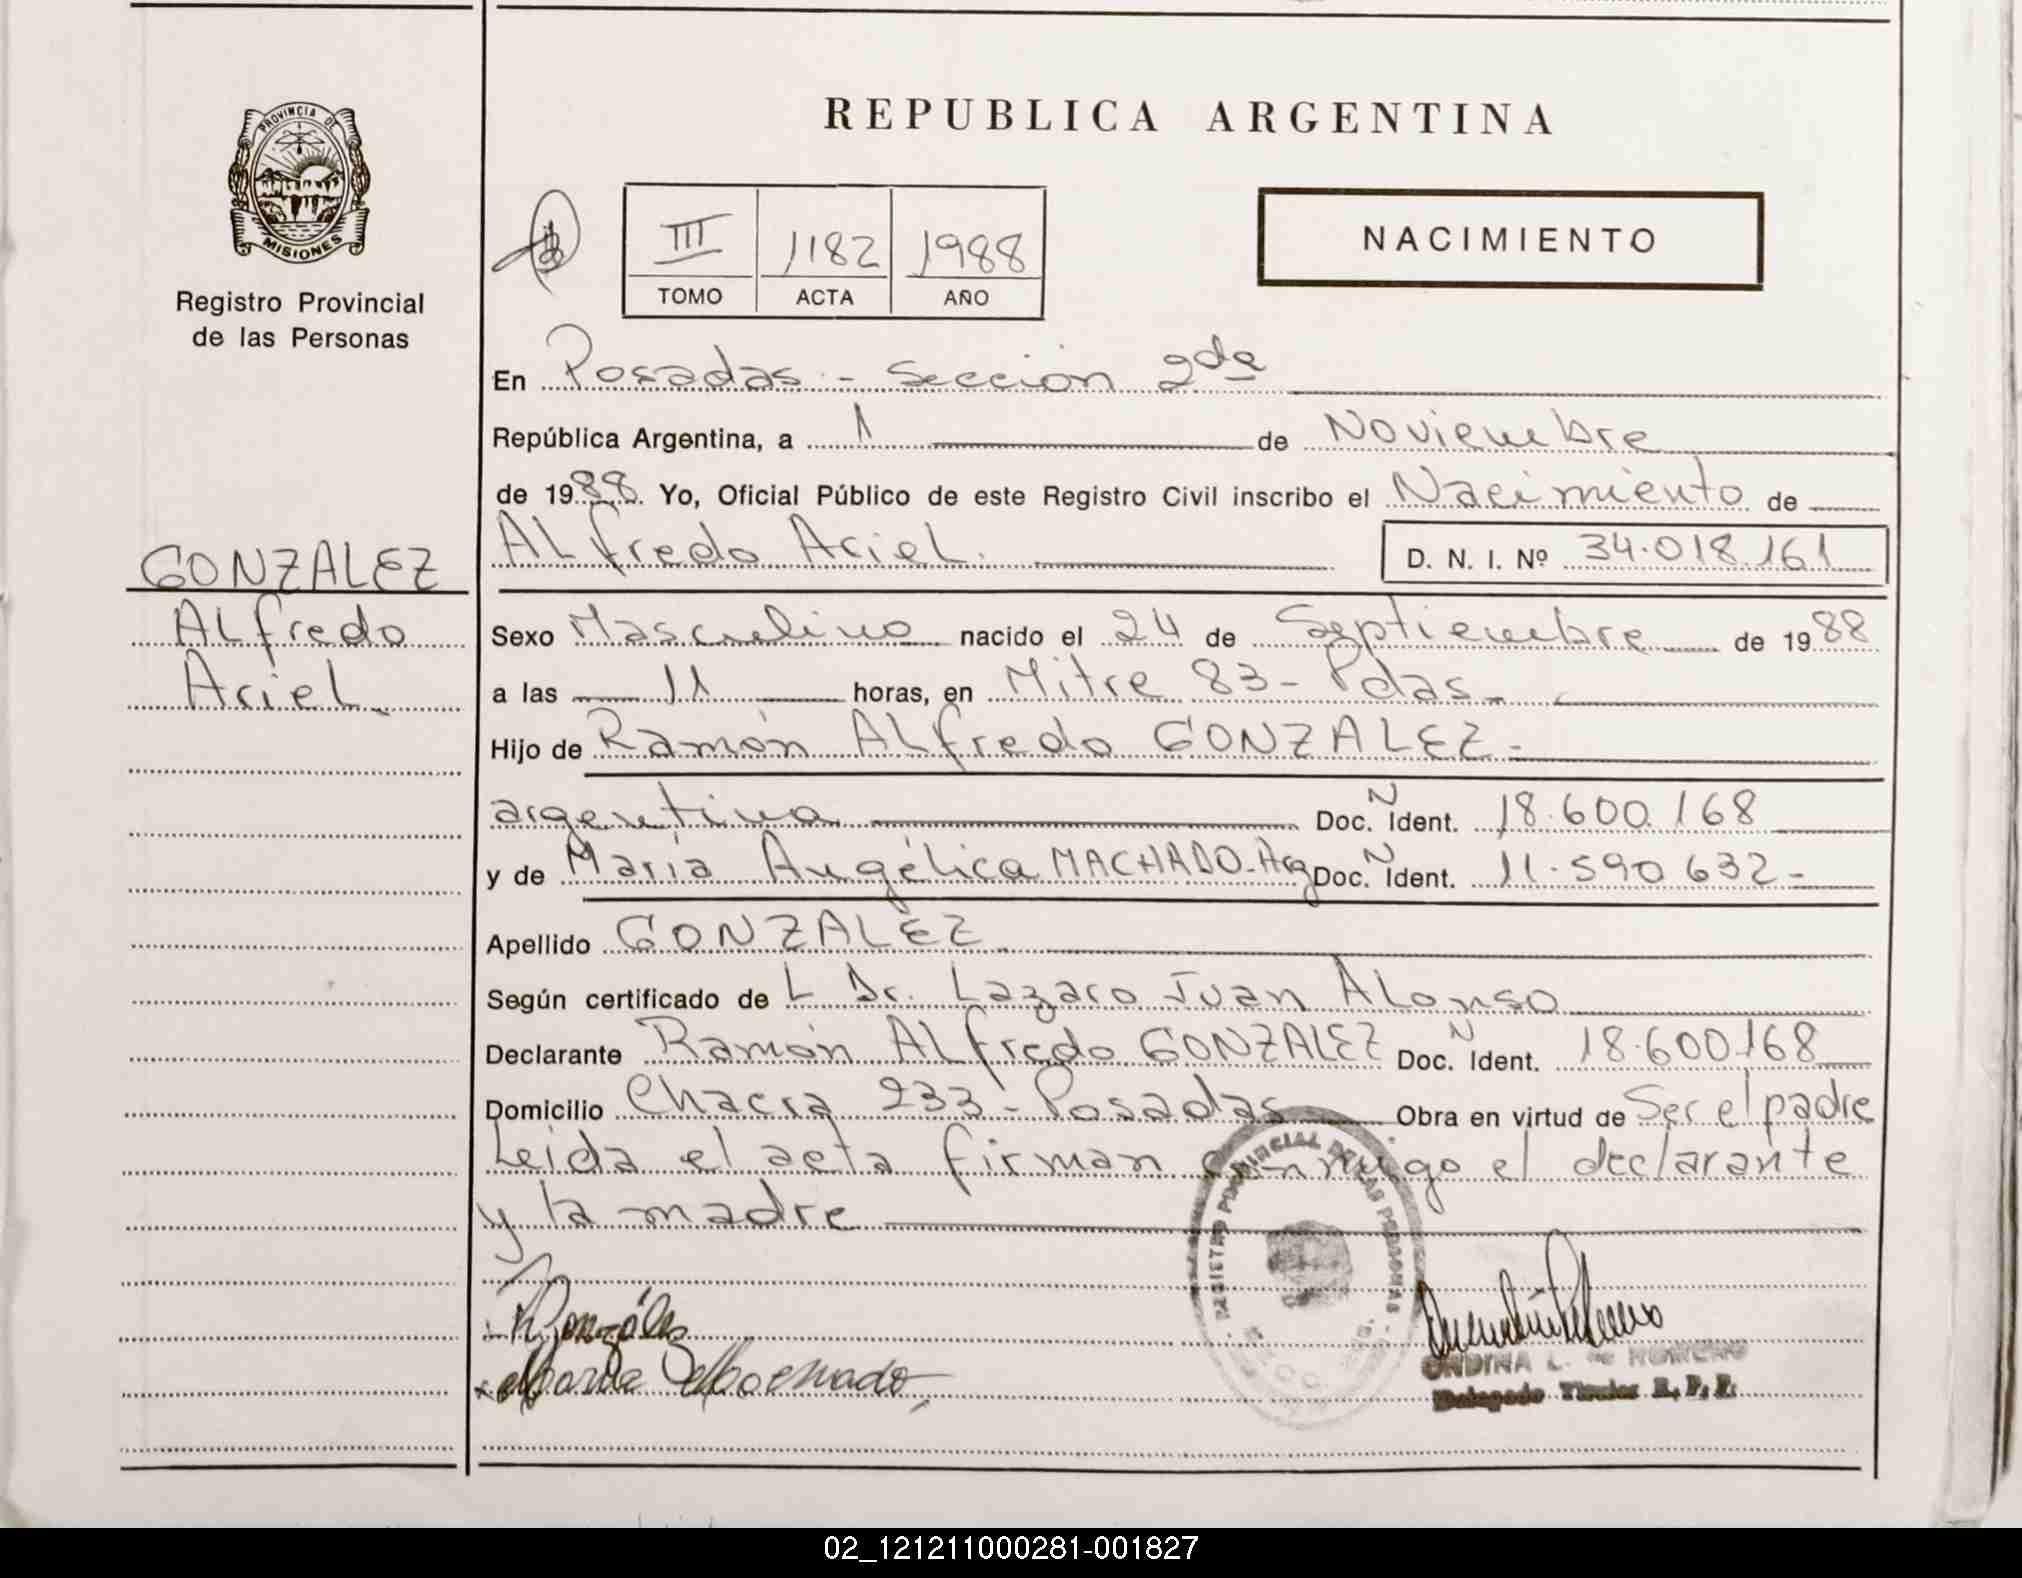 PROVINCIA DE
MISIONES
Registro Provincial
de las Personas
GONZALEZ
ALfredo
Ariel
REPUBLICA ARGENTINA
III 1182 1988
TOMO ACTA AÑO
NACIMIENTO
En Posadas - Sección 2da
República Argentina, a 1 de Noviembre
de 1988. Yo, Oficial Público de este Registro Civil inscribo el Nacimiento de
ALfredo Ariel. D. N. I. Nº 34.018.161
Sexo Masculino nacido el 24 de Septiembre de 1988
a las 11 horas, en Mitre 83 - Pdas.
Hijo de Ramón ALfredo GONZALEZ.
argentino Doc. N Ident. 18.600.168
y de María Angélica MACHADO - Arg Doc. N Ident. 11.590.632 -
Apellido GONZALEZ
Según certificado de L Dr. Lazaro Juan ALonso
Declarante Ramón ALfredo GONZALEZ Doc. N Ident. 18.600.168
Domicilio Chacra 233 - Posadas Obra en virtud de Ser el padre
Leida el acta firman conmigo el declarante
y la madre
REGISTRO PROVINCIAL DE LAS PERSONAS
González
Maria Machado
ONDINA L. de MORENO
Delegado Titular R. P. P.
02_121211000281-001827